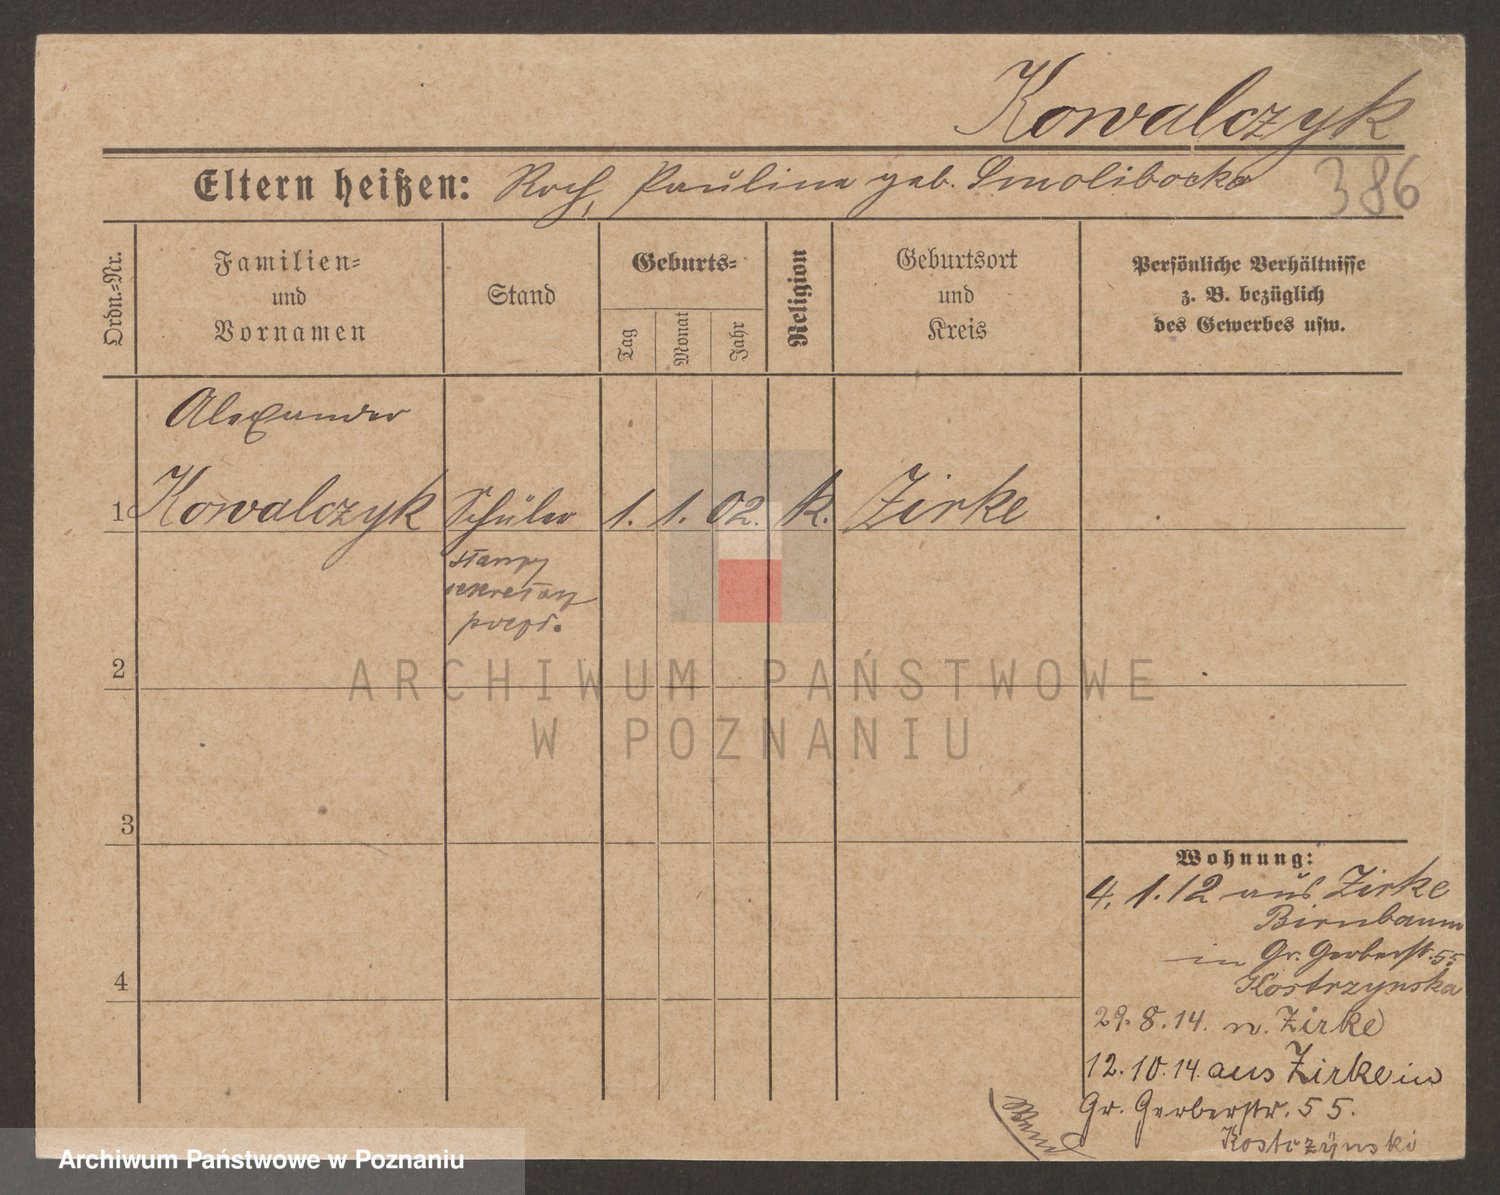 Kowalczyk
Eltern heißen: Roch, Pauline geb. Smolibocka
386
Ordn.-Nr.
Familien-
und
Vornamen
Stand
Geburts-
Tag
Monat
Jahr
Religion
Geburtsort
und
Kreis
Persönliche Verhältnisse
z. B. bezüglich
des Gewerbes usw.
Alexander
1 Kowalczyk Schüler 1. 1. 02. k. Zirke
starszy
sekretarz
poczt.
2
ARCHIWUM PAŃSTWOWE
W POZNANIU
3
Wohnung:
4. 1. 12 aus Zirke
Birnbaum
in Gr. Gerberstr. 55
Kostrzynska
4
29. 8. 14. n. Zirke
12. 10. 14. aus Zirke in
Gr. Gerberstr. 55.
Kostrzynski
Wend
Archiwum Państwowe w Poznaniu